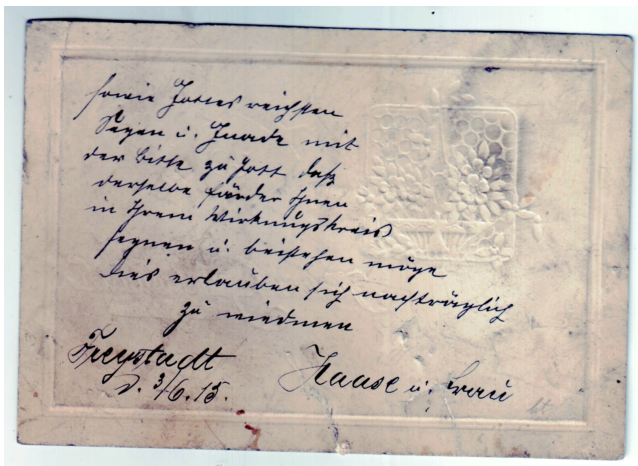 sowie Gottes reichsten
Segen u. Gnade mit
der Bitte zu Gott daß
derselbe fürder Ihnen
in Ihrem Wirkungskreis
segnen u. beistehen möge
dies erlauben sich nachträglich
zu wiedmen
Freystadt
d. 3/6.15.
Haase u. Frau